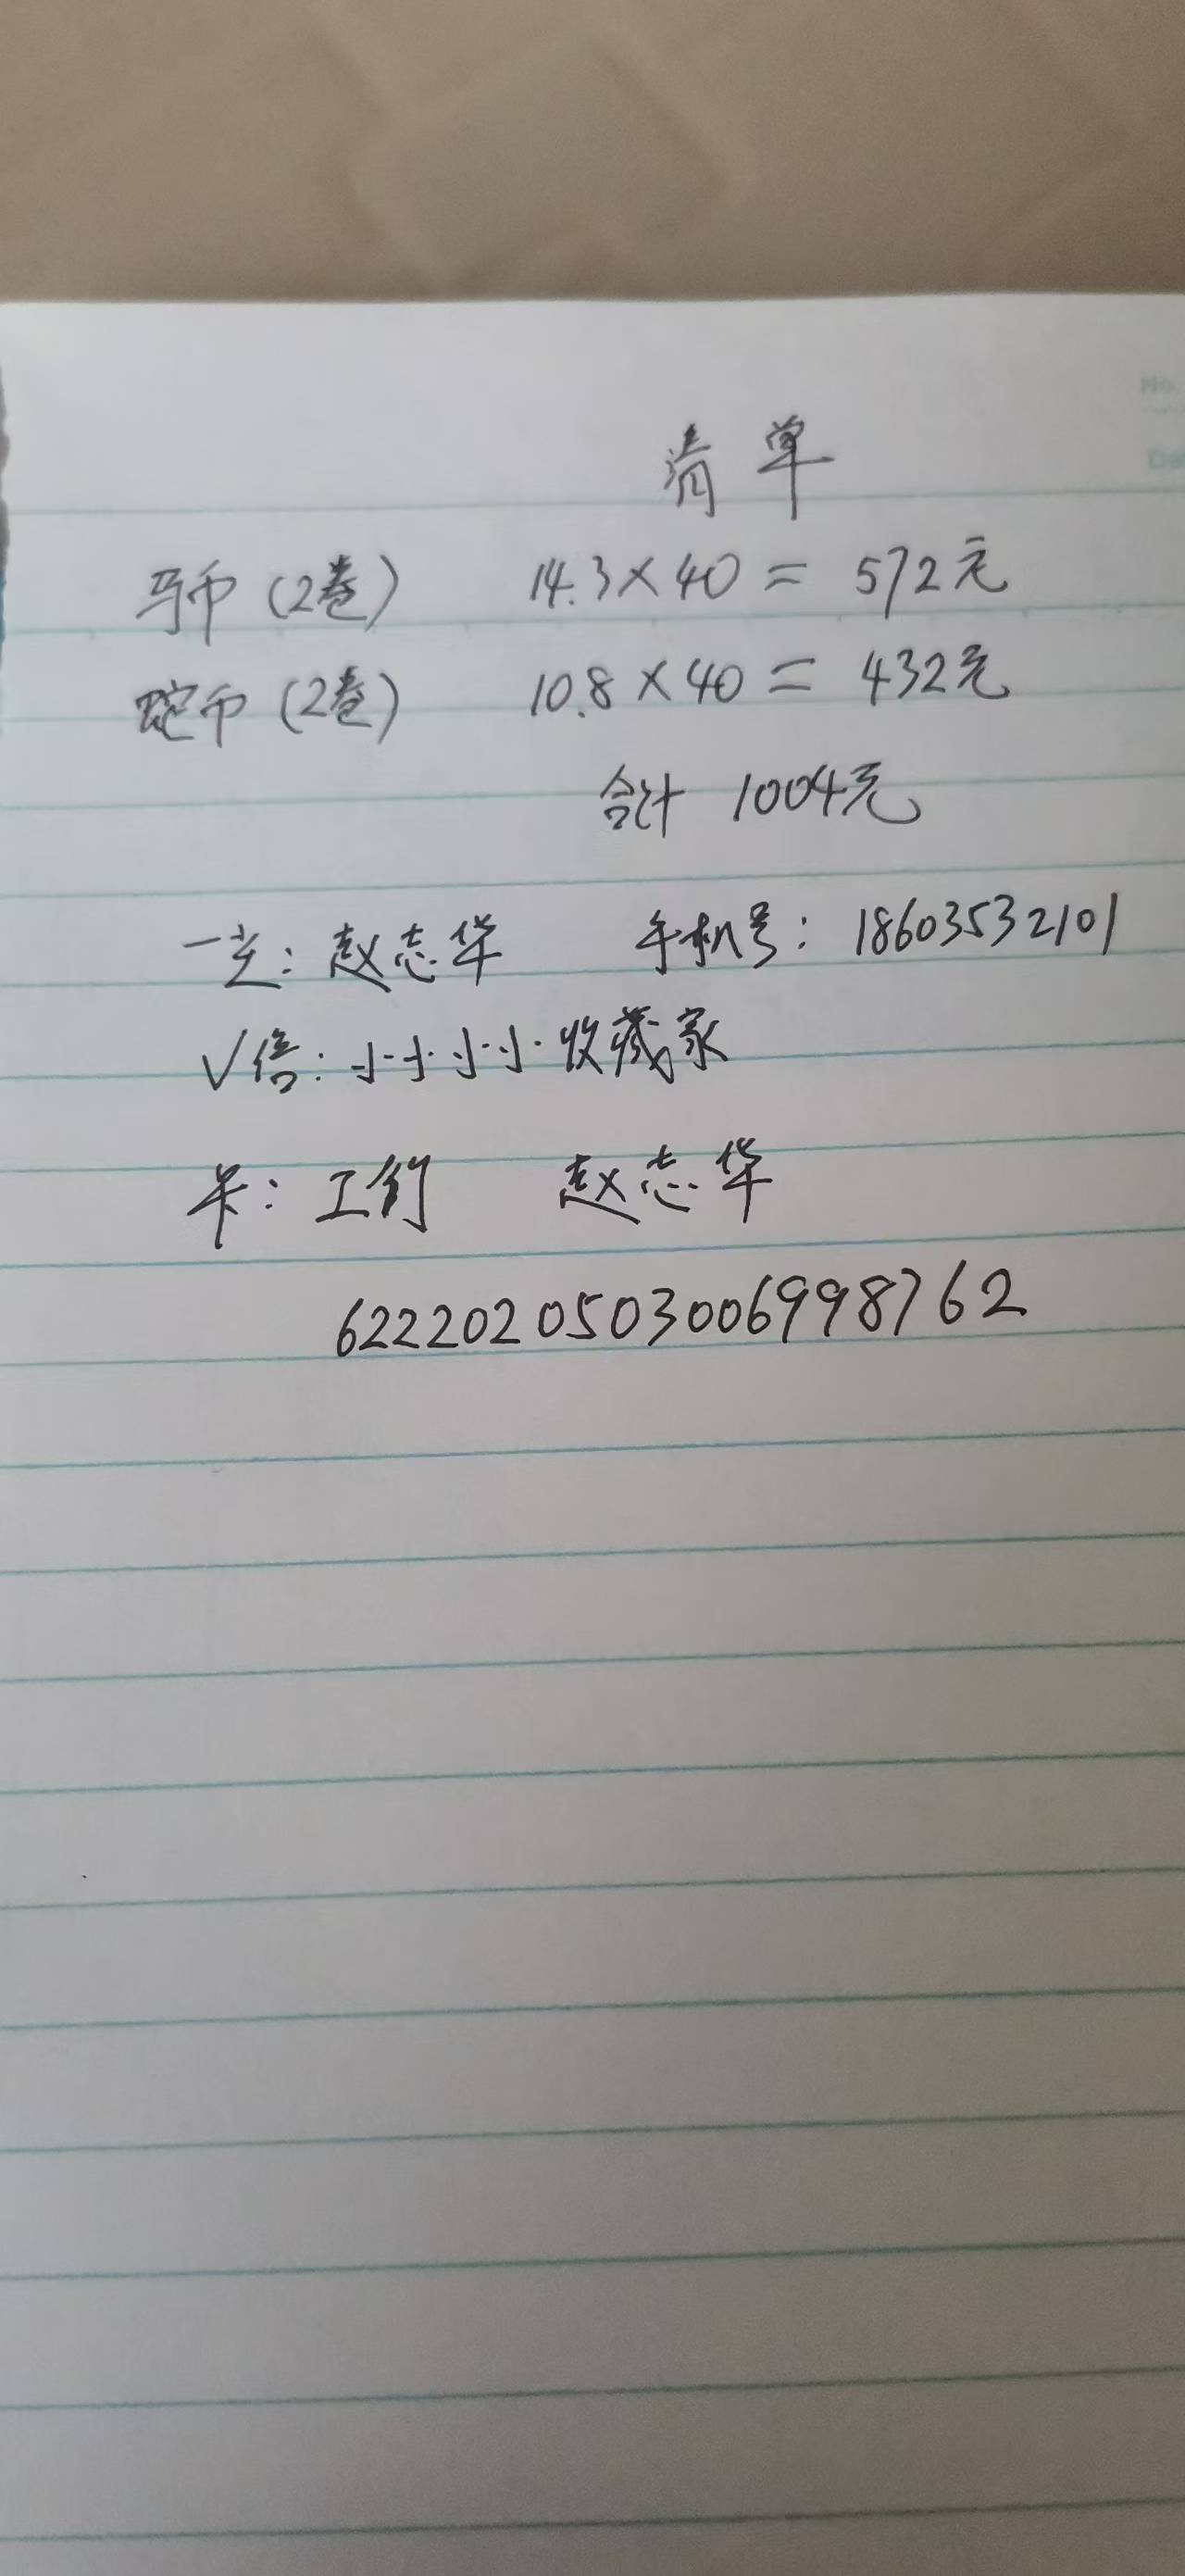 清单
马币（2卷） 14.3×40＝572元
蛇币（2卷） 10.8×40＝432元
合计 1004元
一尘：赵志华 手机号：18603532101
V信：小小小小收藏家
卡：工行 赵志华
6222020503006998762
No.